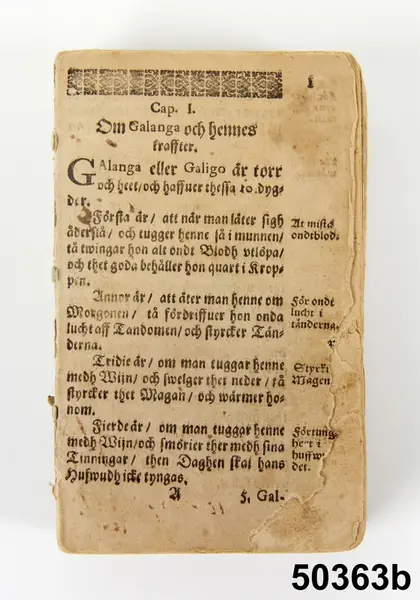 I
Cap. I.
Om Galanga och hennes
kraffter.
GAlanga eller Galigo är torr
och heet/och haffuer thessa 10.dyg-
der.
Första är/ att när man låter sigh
åderslå/ och tugger henne så i munnen/
tå twingar hon alt ondt Blodh vtlöpa/
och thet goda behåller hon quart i Krop-
pen.
At mista
ondtblod.
Annor är/ att äter man henne om
Morgonen/ tå fördriffuer hon onda
lucht aff Tandomen/och styrcker Tän-
derna.
För ondt
lucht i
tänderna.
Tridie är/ om man tuggar henne
medh Wijn/ och swelger thet neder/ tå
styrcker thet Magan/ och wärmer ho-
nom.
Styrki
Magen
Fierde är/ om man tuggar henne
medh Wijn/och smörier ther medh sina
Tinningar/ then Daghen skal hans
Hufwudh icke tyngas.
Förtung
heet i
huffw
det.
A
5. Gal-
50363b